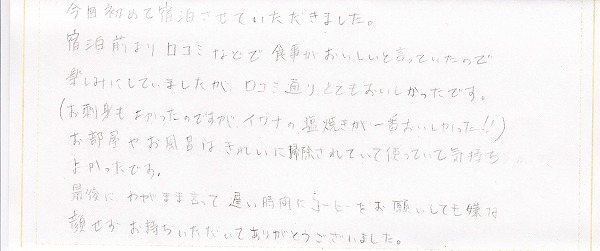 今回初めて宿泊させていただきました。
宿泊前より口コミなどで食事がおいしいと言っていたので
楽しみにしていましたが、口コミ通りとてもおいしかったです。
(お刺身もよかったのですが、イワナの塩焼きが一番おいしかった!!)
お部屋やお風呂はきれいに掃除されていて使っていて気持ち
よかったです。
最後に、わがまま言って遅い時間にコーヒーをお願いしても嫌な
顔せずお持ちいただいてありがとうございました。